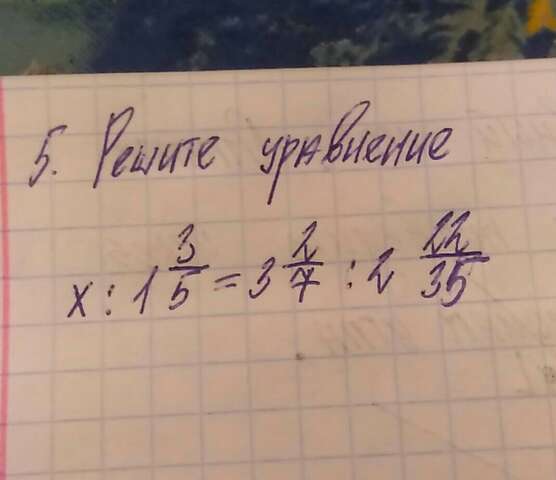 5. Решите уравнение
x : 1 3/5 = 3 2/7 : 2 22/35